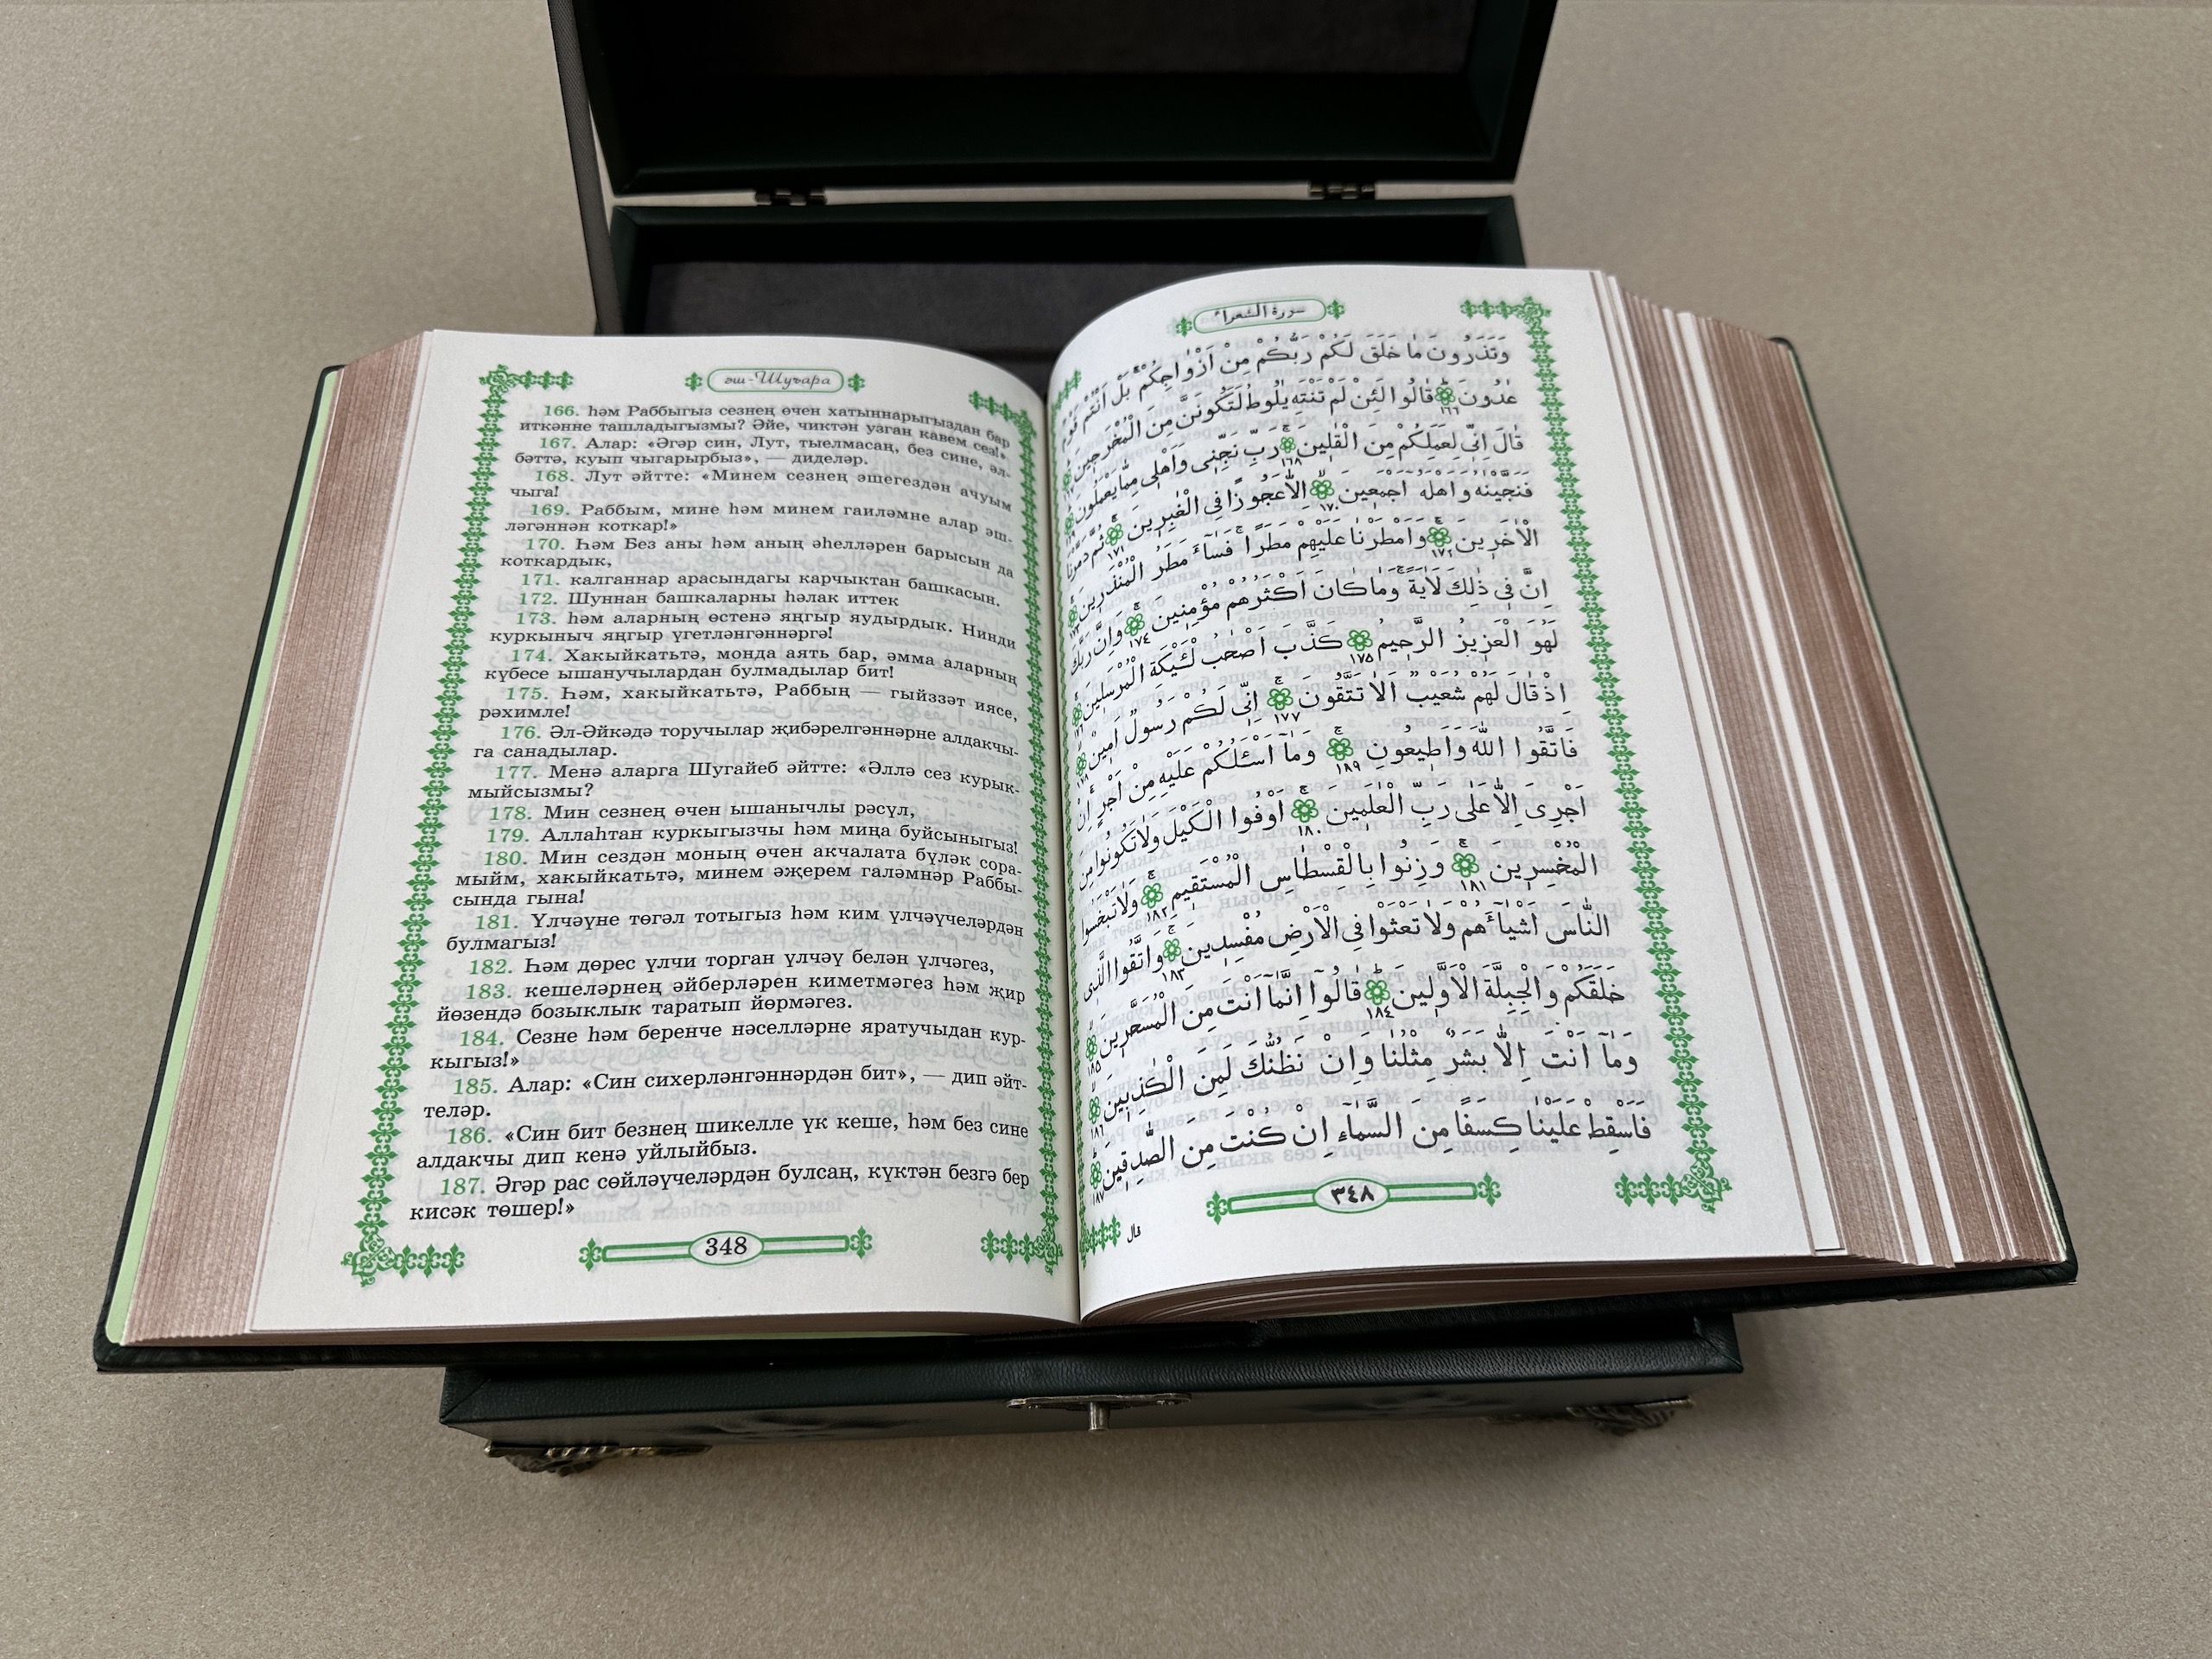 эш-Шуъара
166. һәм Раббыгыз сезнең өчен хатыннарыгыздан бар
иткәнне ташладыгызмы? Әйе, чиктән узган кавем сез!»
167. Алар: «Әгәр син, Лут, тыелмасаң, без сине, әл-
бәттә, куып чыгарырбыз», — диделәр.
168. Лут әйтте: «Минем сезнең эшегездән ачуым
чыга!
169. Раббым, мине һәм минем гаиләмне алар эш-
ләгәннән коткар!»
170. Һәм Без аны һәм аның әһелләрен барысын да
коткардык,
171. калганнар арасындагы карчыктан башкасын.
172. Шуннан башкаларны һәлак иттек
173. һәм аларның өстенә яңгыр яудырдык. Нинди
куркыныч яңгыр үгетләнгәннәргә!
174. Хакыйкатьтә, монда аять бар, әмма аларның
күбесе ышанучылардан булмадылар бит!
175. Һәм, хакыйкатьтә, Раббың — гыйззәт иясе,
рәхимле!
176. Әл-Әйкәдә торучылар җибәрелгәннәрне алдакчы-
га санадылар.
177. Менә аларга Шугайеб әйтте: «Әллә сез курык-
мыйсызмы?
178. Мин сезнең өчен ышанычлы рәсүл,
179. Аллаһтан куркыгызчы һәм миңа буйсыныгыз!
180. Мин сездән моның өчен акчалата бүләк сора-
мыйм, хакыйкатьтә, минем әҗерем галәмнәр Раббы-
сында гына!
181. Үлчәүне төгәл тотыгыз һәм ким үлчәүчеләрдән
булмагыз!
182. Һәм дөрес үлчи торган үлчәү белән үлчәгез,
183. кешеләрнең әйберләрен киметмәгез һәм җир
йөзендә бозыклык таратып йөрмәгез.
184. Сезне һәм беренче нәселләрне яратучыдан кур-
кыгыз!»
185. Алар: «Син сихерләнгәннәрдән бит», — дип әйт-
теләр.
186. «Син бит безнең шикелле үк кеше, һәм без сине
алдакчы дип кенә уйлыйбыз.
187. Әгәр рас сөйләүчеләрдән булсаң, күктән безгә бер
кисәк төшер!»
348
سورة الشعراء
وَتَذَرُونَ مَا خَلَقَ لَكُمْ رَبُّكُمْ مِنْ اَزْوَاجِكُمْ بَلْ اَنْتُمْ قَوْمٌ
عٰدُونَ ١٦٦ قَالُوا لَئِنْ لَمْ تَنْتَهِ يٰلُوطُ لَتَكُونَنَّ مِنَ الْمُخْرَجِينَ ١٦٧
قَالَ اِنِّى لِعَمَلِكُمْ مِنَ الْقٰلِينَ ١٦٨ رَبِّ نَجِّنِى وَاَهْلِى مِمَّا يَعْمَلُونَ ١٦٩
فَنَجَّيْنٰهُ وَاَهْلَهُ اَجْمَعِينَ ١٧٠ اِلَّا عَجُوزًا فِى الْغٰبِرِينَ ١٧١ ثُمَّ دَمَّرْنَا
الْاٰخَرِينَ ١٧٢ وَاَمْطَرْنَا عَلَيْهِمْ مَطَرًا فَسَٓاءَ مَطَرُ الْمُنْذَرِينَ ١٧٣
اِنَّ فِى ذٰلِكَ لَاٰيَةً وَمَا كَانَ اَكْثَرُهُمْ مُؤْمِنِينَ ١٧٤ وَاِنَّ رَبَّكَ
لَهُوَ الْعَزِيزُ الرَّحِيمُ ١٧٥ كَذَّبَ اَصْحٰبُ لْئَيْكَةِ الْمُرْسَلِينَ ١٧٦
اِذْ قَالَ لَهُمْ شُعَيْبٌ اَلَا تَتَّقُونَ ١٧٧ اِنِّى لَكُمْ رَسُولٌ اَمِينٌ ١٧٨
فَاتَّقُوا اللّٰهَ وَاَطِيعُونِ ١٨٩ وَمَٓا اَسْـَٔلُكُمْ عَلَيْهِ مِنْ اَجْرٍ اِنْ
اَجْرِىَ اِلَّا عَلٰى رَبِّ الْعٰلَمِينَ ١٨٠ اَوْفُوا الْكَيْلَ وَلَا تَكُونُوا مِنَ
الْمُخْسِرِينَ ١٨١ وَزِنُوا بِالْقِسْطَاسِ الْمُسْتَقِيمِ ١٨٢ وَلَا تَبْخَسُوا
النَّاسَ اَشْيَٓاءَهُمْ وَلَا تَعْثَوْا فِى الْاَرْضِ مُفْسِدِينَ ١٨٣ وَاتَّقُوا الَّذِى
خَلَقَكُمْ وَالْجِبِلَّةَ الْاَوَّلِينَ ١٨٤ قَالُٓوا اِنَّمَٓا اَنْتَ مِنَ الْمُسَحَّرِينَ ١٨٥
وَمَٓا اَنْتَ اِلَّا بَشَرٌ مِثْلُنَا وَاِنْ نَظُنُّكَ لَمِنَ الْكٰذِبِينَ ١٨٦
فَاَسْقِطْ عَلَيْنَا كِسَفًا مِنَ السَّمَٓاءِ اِنْ كُنْتَ مِنَ الصّٰدِقِينَ ١٨٧
٣٤٨
قال